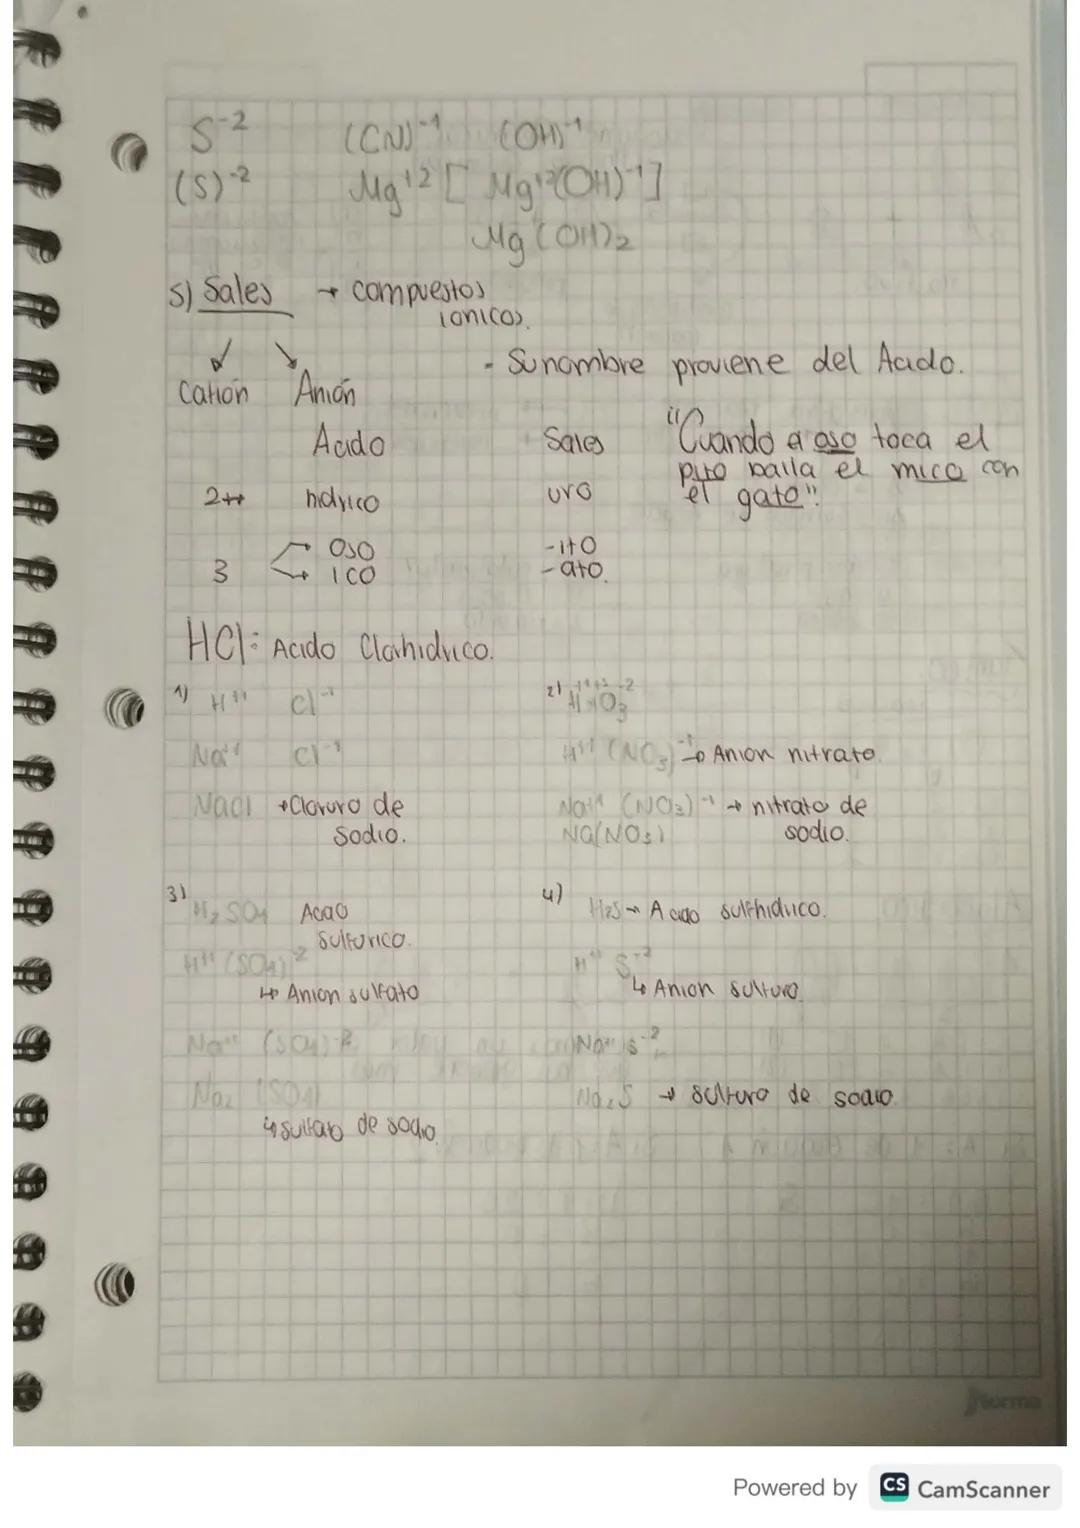 S⁻² (CN)⁻¹ (OH)⁻¹
(S)⁻² Mg⁺² [ Mg⁺²(OH)⁻¹]
Mg(OH)₂
5) Sales → compuestos
ionicos.
- Su nombre proviene del Acido.
Catión Anión
Acido Sales
"Cuando el oso toca el
pito baila el mico con
el gato".
2 hidrico uro
3 → oso -ito
→ ico -ato.
HCl: Acido Clorhidrico.
1) H⁺¹ Cl⁻¹
Na⁺¹ Cl⁻¹
NaCl → Cloruro de
Sodio.
2) H⁺¹N⁺⁵O₃⁻²
H⁺¹ (NO₃)⁻¹ → Anion nitrato
Na⁺¹ (NO₃)⁻¹ → nitrato de
Na(NO₃) sodio.
3) H₂SO₄ Acido
Sulfurico.
H⁺¹ (SO₄)⁻²
↳ Anion sulfato
Na⁺¹ (SO₄)⁻²
Na₂ (SO₄)
↳ sulfato de sodio.
4) H₂S → Acido sulfhidrico.
H⁺¹ S⁻²
↳ Anion sulfuro
Na⁺¹ S⁻²
Na₂S → sulfuro de sodio
Norma
Powered by CS CamScanner